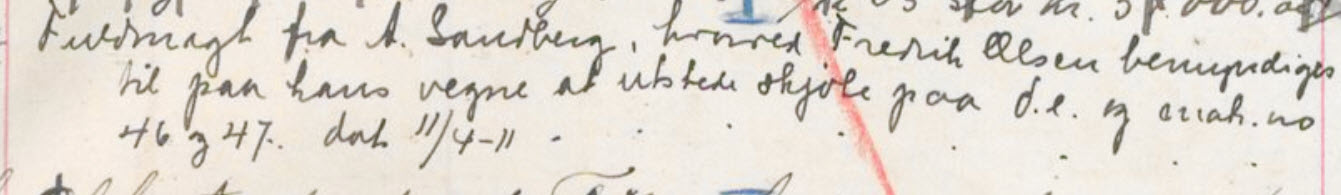 Fuldmagt fra A. Sandberg, hvorved Fredrik Olsen bemyndiges
til paa hans vegne at utstede skjøte paa d.e. og matr. no
46 og 47. dat 11/4-11